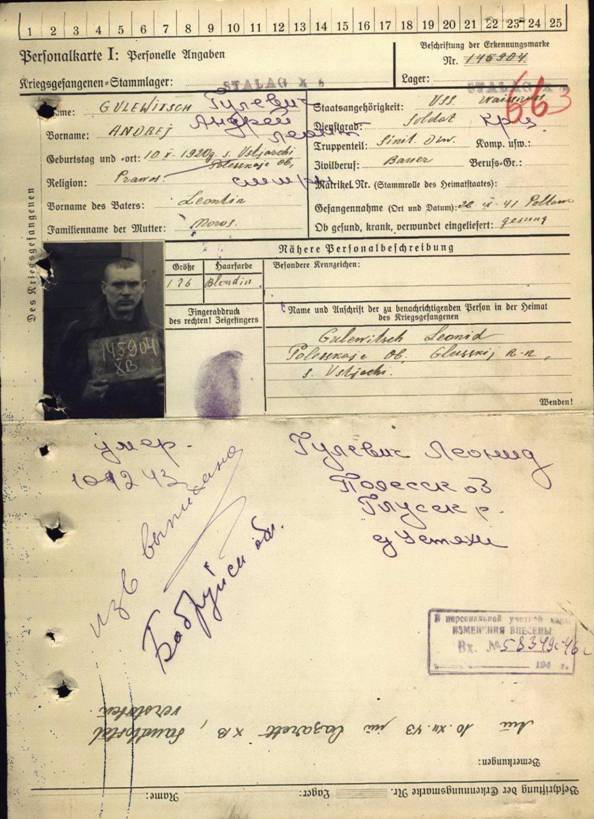 1 2 3 4 5 6 7 8 9 10 11 12 13 14 15 16 17 18 19 20 21 22 23 24 25
Personalkarte I: Personelle Angaben
Kriegsgefangenen-Stammlager: STALAG X
Beschriftung der Erkennungsmarke
Nr. 145904
Lager: STALAG X
663
Des Kriegsgefangenen
Name: GULEWITSCH Гулевич
Vorname: ANDREJ Андрей
Geburtstag und -ort: 10 X. 1920 s. Ustjerchi
Polesskoje Ob.
Religion: Prawos.
Vorname des Vaters: Leontin
Familienname der Mutter: Moros.
Staatsangehörigkeit: USS.
Dienstgrad: Soldat
Truppenteil: Div. Komp. usw.:
Zivilberuf: Bauer Berufs-Gr.:
Matrikel Nr. (Stammrolle des Heimatstaates):
Gefangennahme (Ort und Datum): 22 IX. 41
Ob gesund, krank, verwundet eingeliefert: gesund
Nähere Personalbeschreibung
Größe Haarfarbe Besondere Kennzeichen:
176 Blondin
145904
XB
Fingerabdruck
des rechten! Zeigefingers
Name und Anschrift der zu benachrichtigenden Person in der Heimat
des Kriegsgefangenen
Gulewitsch Leonid
Polesskoje Ob. Glusskij R-n,
s. Ustjechi.
Wenden!
умер.
10 12 43
изв выписано
Бобруйск обл.
Гулевич Леонид
Полесск об
Глусск р.
д Устяхи
В персональной учетной карт.
ИЗМЕНЕНИЯ ВНЕСЕНЫ
Вх. № 58349с-46г
194 г.
10. XII. 43 im Lazarett XB, Sandbostel
verstorben
Bemerkungen:
Beschriftung der Erkennungsmarke Nr. Lager: Name: